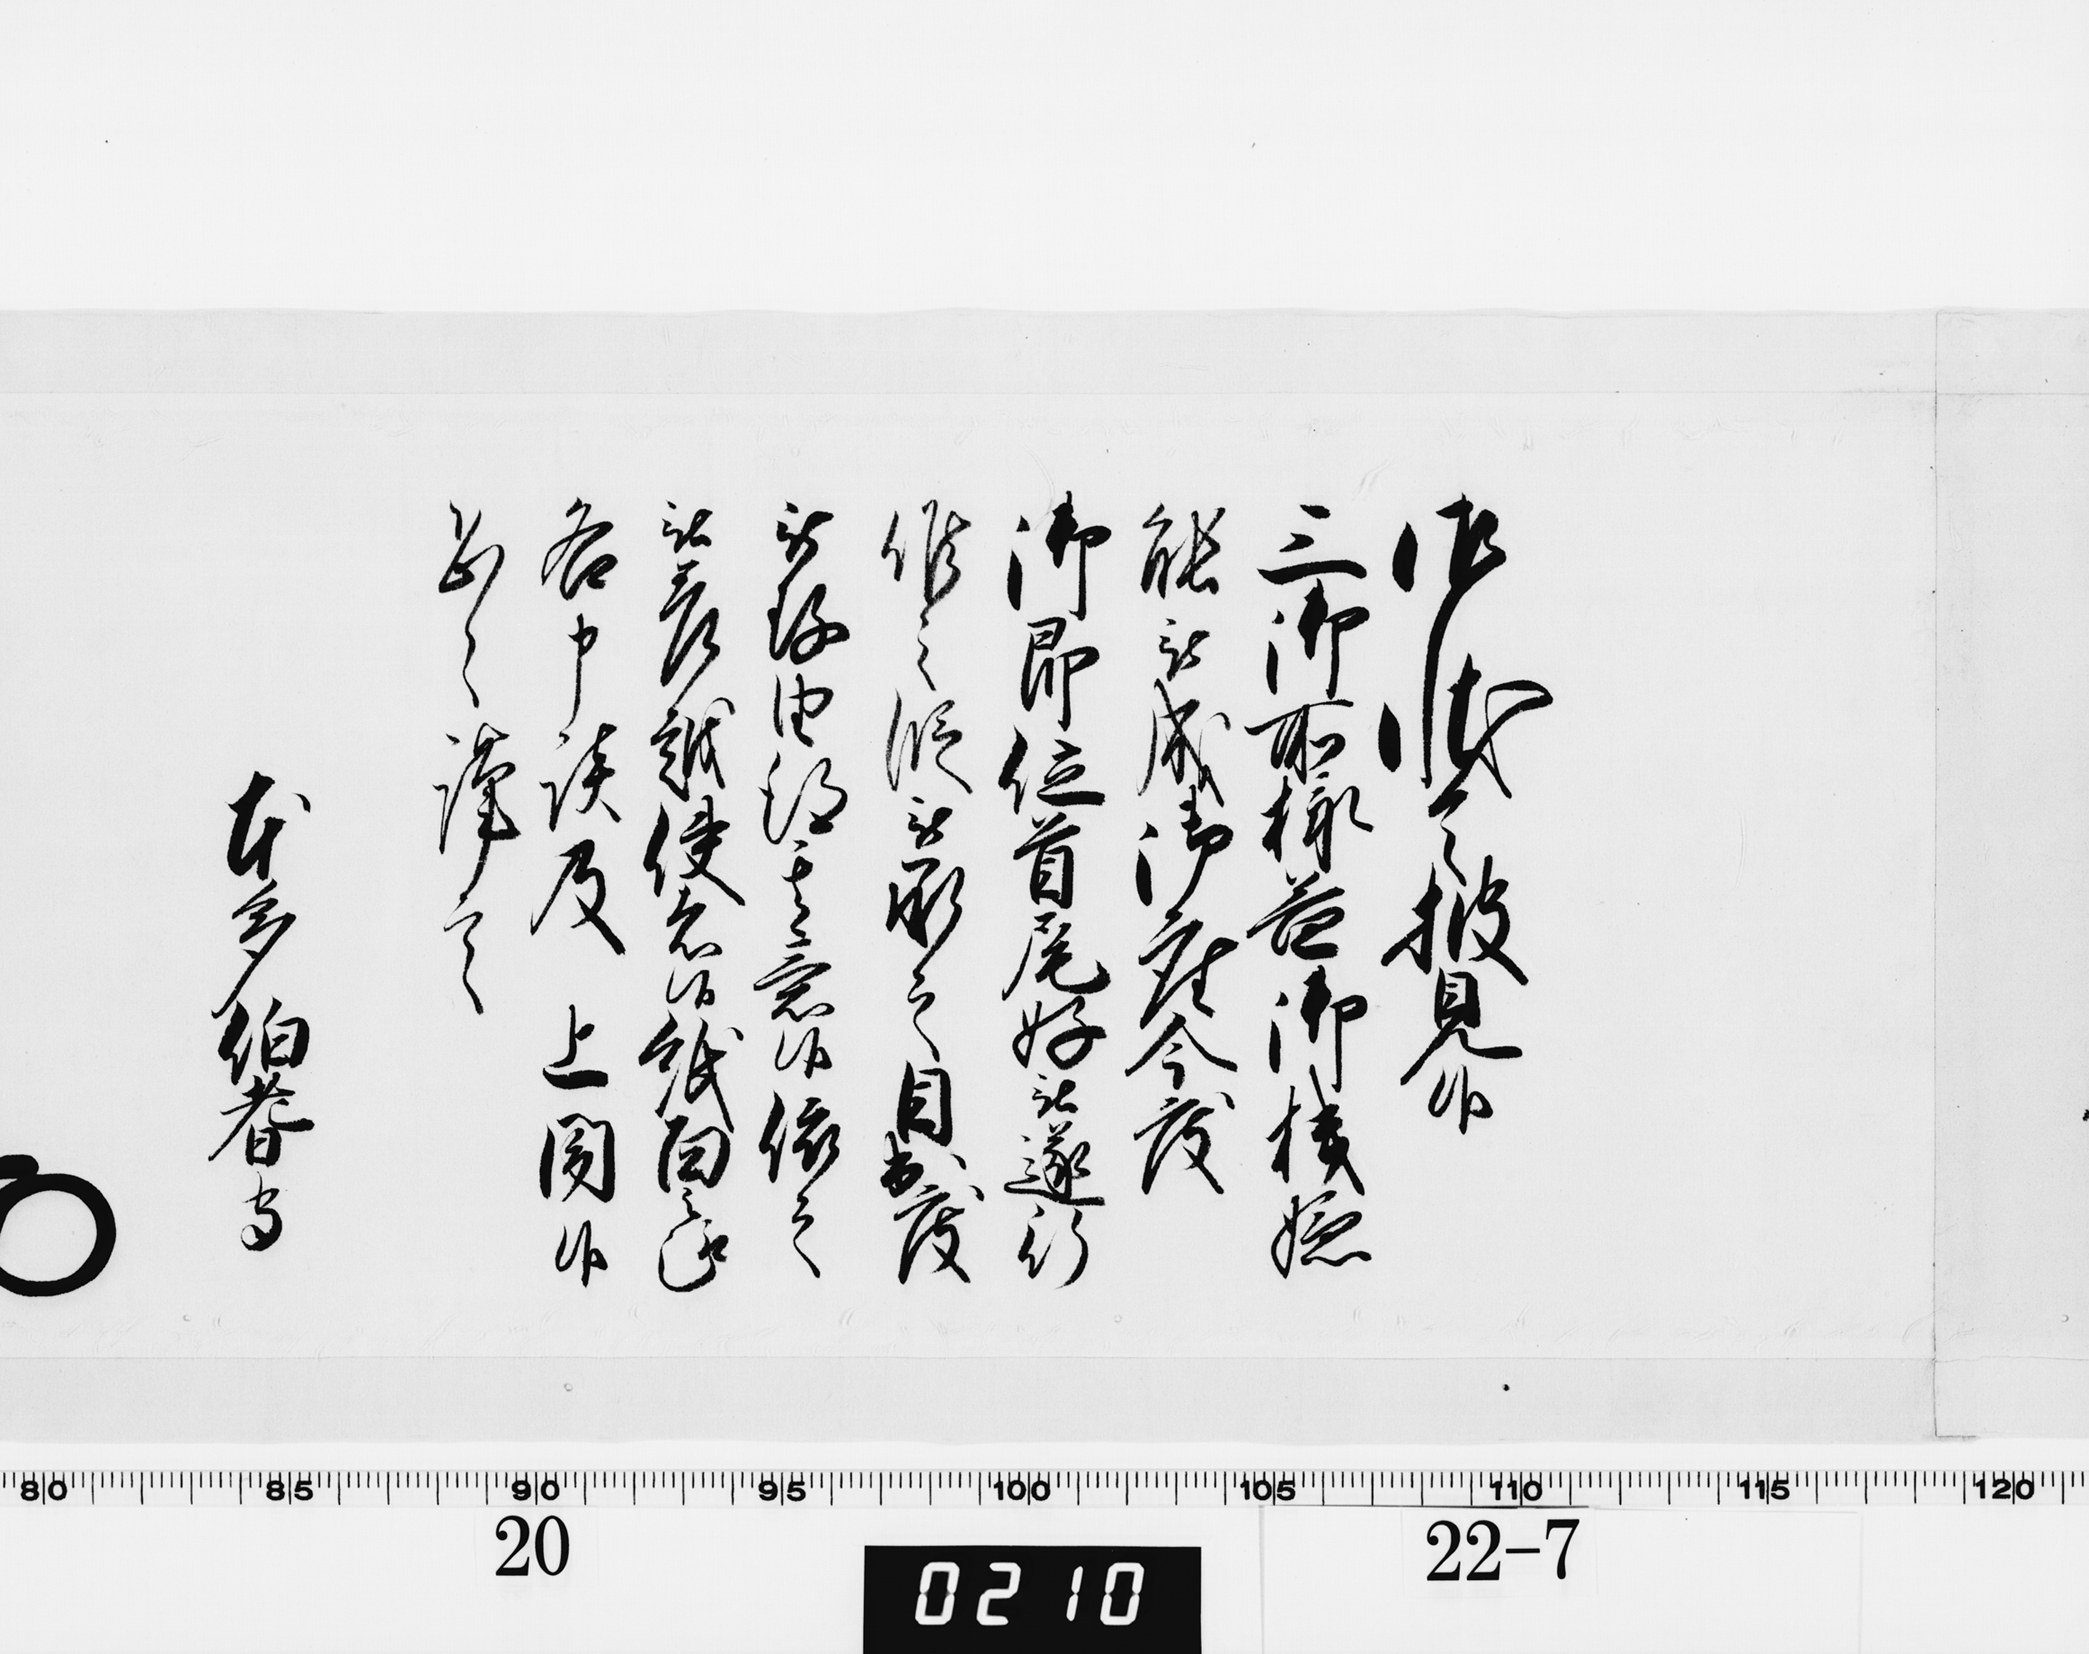 御状令披見候
三御所様益御機嫌
能被成御座今度
御即位首尾好被遂行
候之段被承之目出度
被存由得其意候依之
被差越使者候紙面之趣
各申談及 上聞候
恐々謹言
本多伯耆守
80 85 90 95 100 105 110 115 120
20
22-7
0210